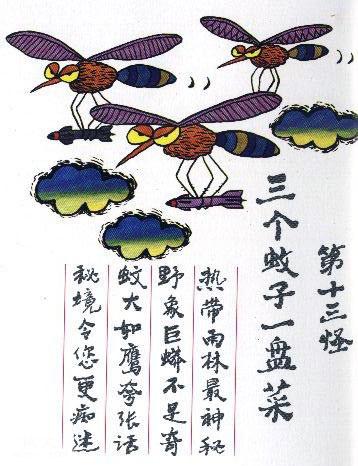 第十三怪
三个蚊子一盘菜
热带雨林最神秘
野象巨蟒不是奇
蚊大如鹰夸张话
秘境令您更痴迷